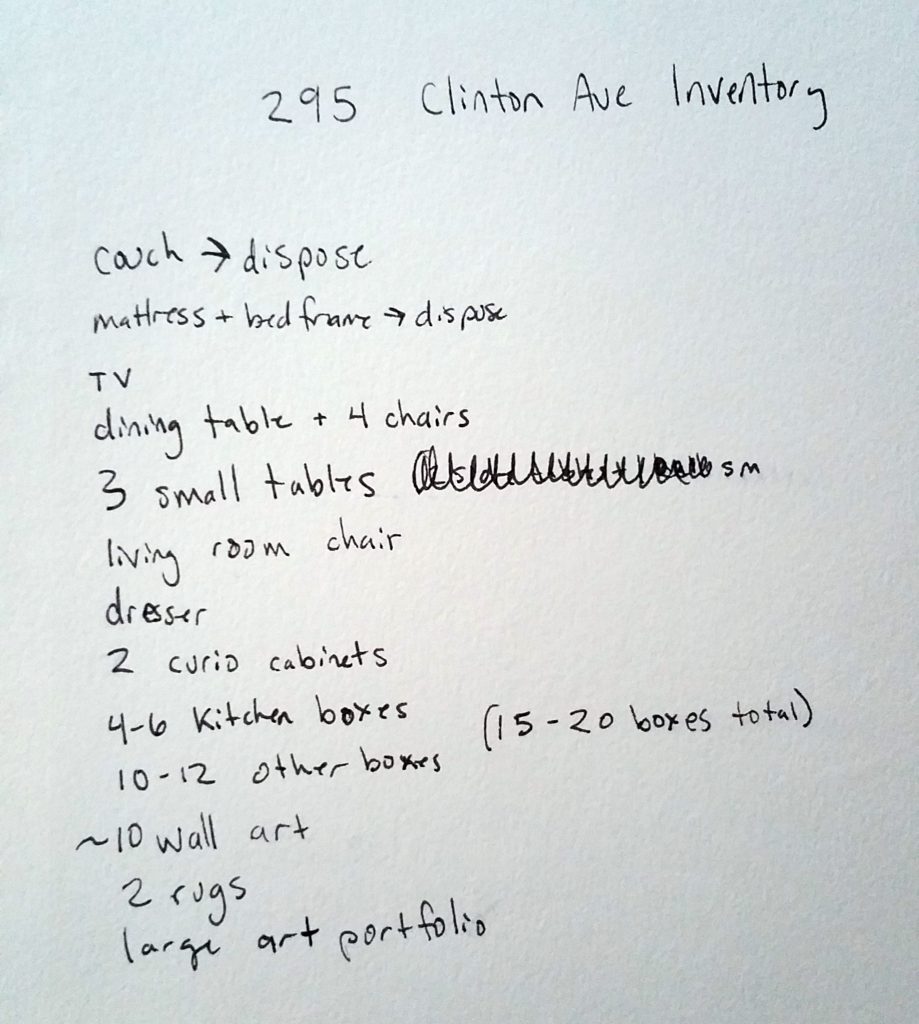 295 Clinton Ave Inventory
couch → dispose
mattress + bed frame → dispose
TV
dining table + 4 chairs
3 small tables sm
living room chair
dresser
2 curio cabinets
4-6 kitchen boxes
(15-20 boxes total)
10-12 other boxes
~10 wall art
2 rugs
large art portfolio